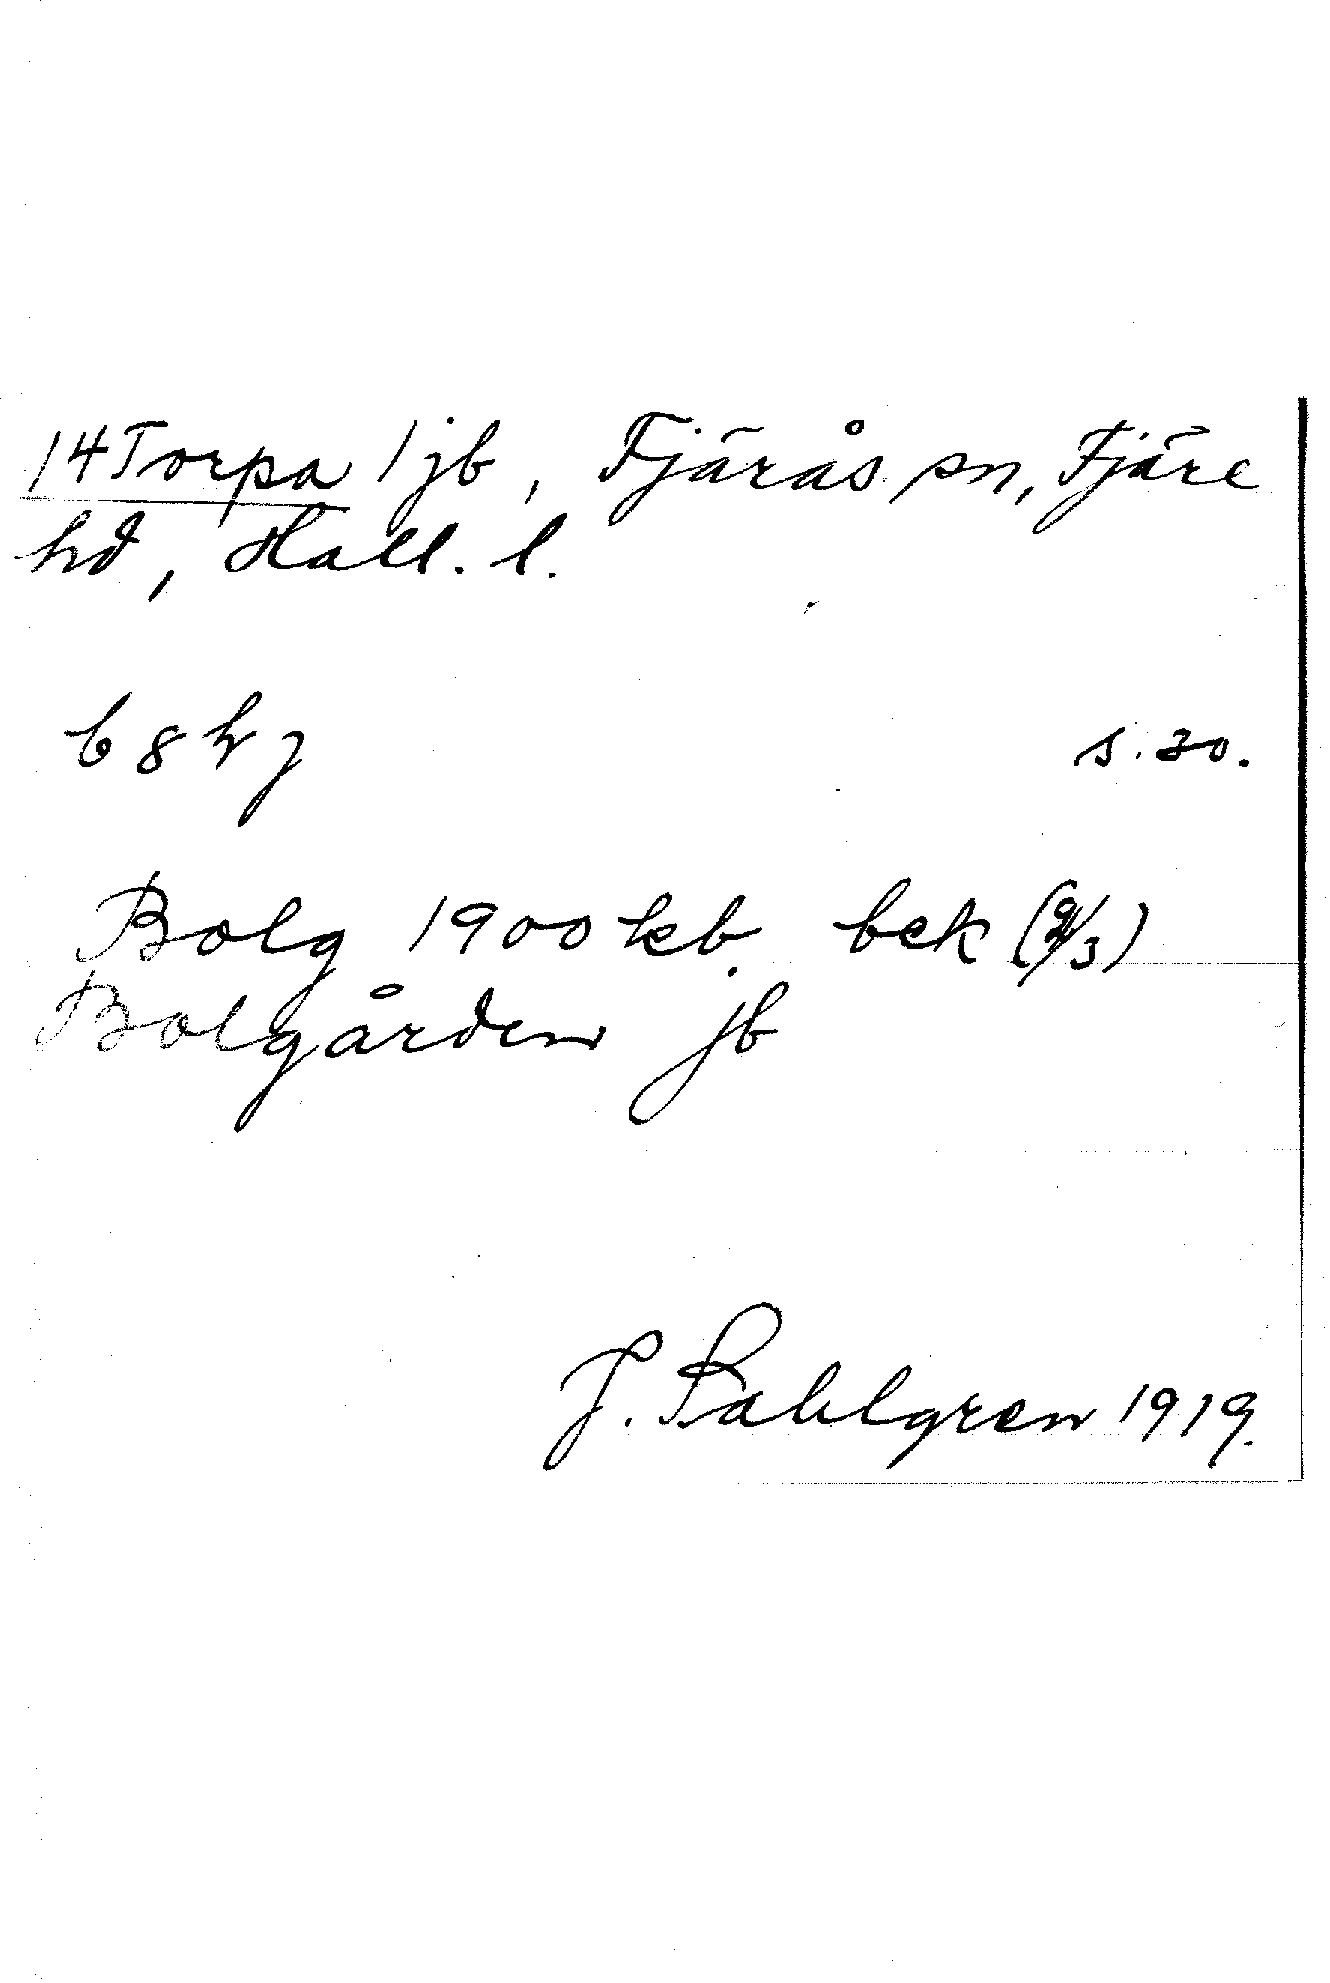 14 Torpa 1 jb, Fjärås sn, Fjäre
hd, Hall. l.
b 8 h j s. 30.
Bolg 1900 kb. bek (2/3)
Bolgården jb
J. Sahlgren 1919.